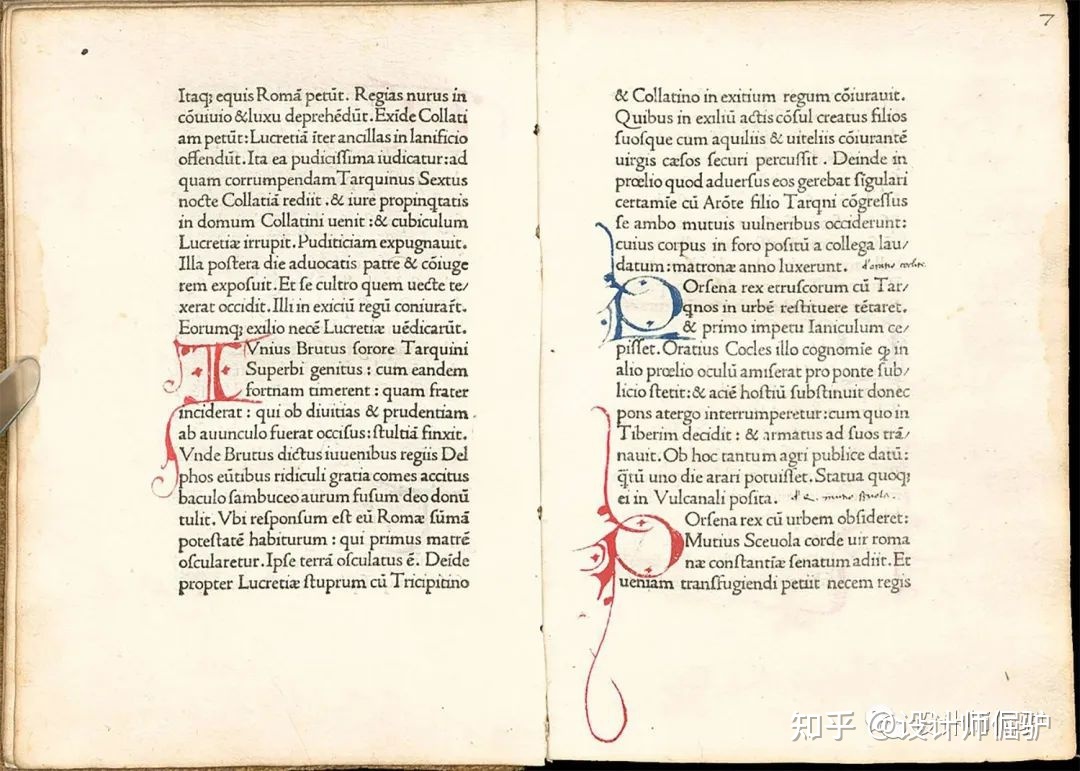 Itaq; equis Romā petūt. Regias nurus in
cōuiuio &luxu deprehēdūt. Exīde Collati
am petūt: Lucretiā īter ancillas in lanificio
offendūt. Ita ea pudiciſſima iudicatur: ad
quam corrumpendam Tarquinus Sextus
nocte Collatiā rediit. & iure propinqtatis
in domum Collatini uenit: & cubiculum
Lucretiæ irrupit. Puditiciam expugnauit.
Illa poſtera die aduocatis patre & cōiuge
rem expoſuit. Et ſe cultro quem ueſte te/
xerat occidit. Illi in exiciū regū coniurar̄t.
Eorumq; exilio necē Lucretiæ uēdicarūt.
IVnius Brutus ſorore Tarquini
Superbi genitus: cum eandem
fortnam timerent: quam frater
inciderat: qui ob diuitias & prudentiam
ab auunculo fuerat occiſus: ſtultiā finxit.
Vnde Brutus dictus iuuenibus regiis Del
phos eūtibus ridiculi gratia comes accitus
baculo ſambuceo aurum fuſum deo donū
tulit. Vbi reſponſum eſt eū Romæ ſūmā
poteſtatē habiturum: qui primus matrē
oſcularetur. Ipſe terrā oſculatus ē. Deīde
propter Lucretiæ ſtuprum cū Tricipitino
7
& Collatino in exitium regum cōiurauit.
Quibus in exiliū actis cōſul creatus filios
ſuoſque cum aquiliis & uiteliis cōiurantē
uirgis cæſos ſecuri percuſſit. Deinde in
prœlio quod aduerſus eos gerebat ſigulari
certamīe cū Arōte filio Tarqni cōgreſſus
ſe ambo mutuis uulneribus occiderunt:
cuius corpus in foro poſitū a collega lau/
datum: matronæ anno luxerunt.
POrſena rex etruſcorum cū Tar/
qnos in urbē reſtituere tētaret.
& primo impetu Ianiculum ce/
piſſet. Oratius Cocles illo cognomīe ꝙ in
alio prœlio oculū amiſerat pro ponte ſub/
licio ſtetit: & aciē hoſtiū ſubſtinuit donec
pons atergo interrumperetur: cum quo in
Tiberim decidit: & armatus ad ſuos trā/
nauit. Ob hoc tantum agri publice datū:
q̄tū uno die arari potuiſſet. Statua quoq;
ei in Vulcanali poſita.
POrſena rex cū urbem obſideret:
Mutius Sceuola corde uir roma
næ conſtantiæ ſenatum adiit. Et
ueniam tranſfugiendi petiit necem regis
知乎 @设计师倔驴